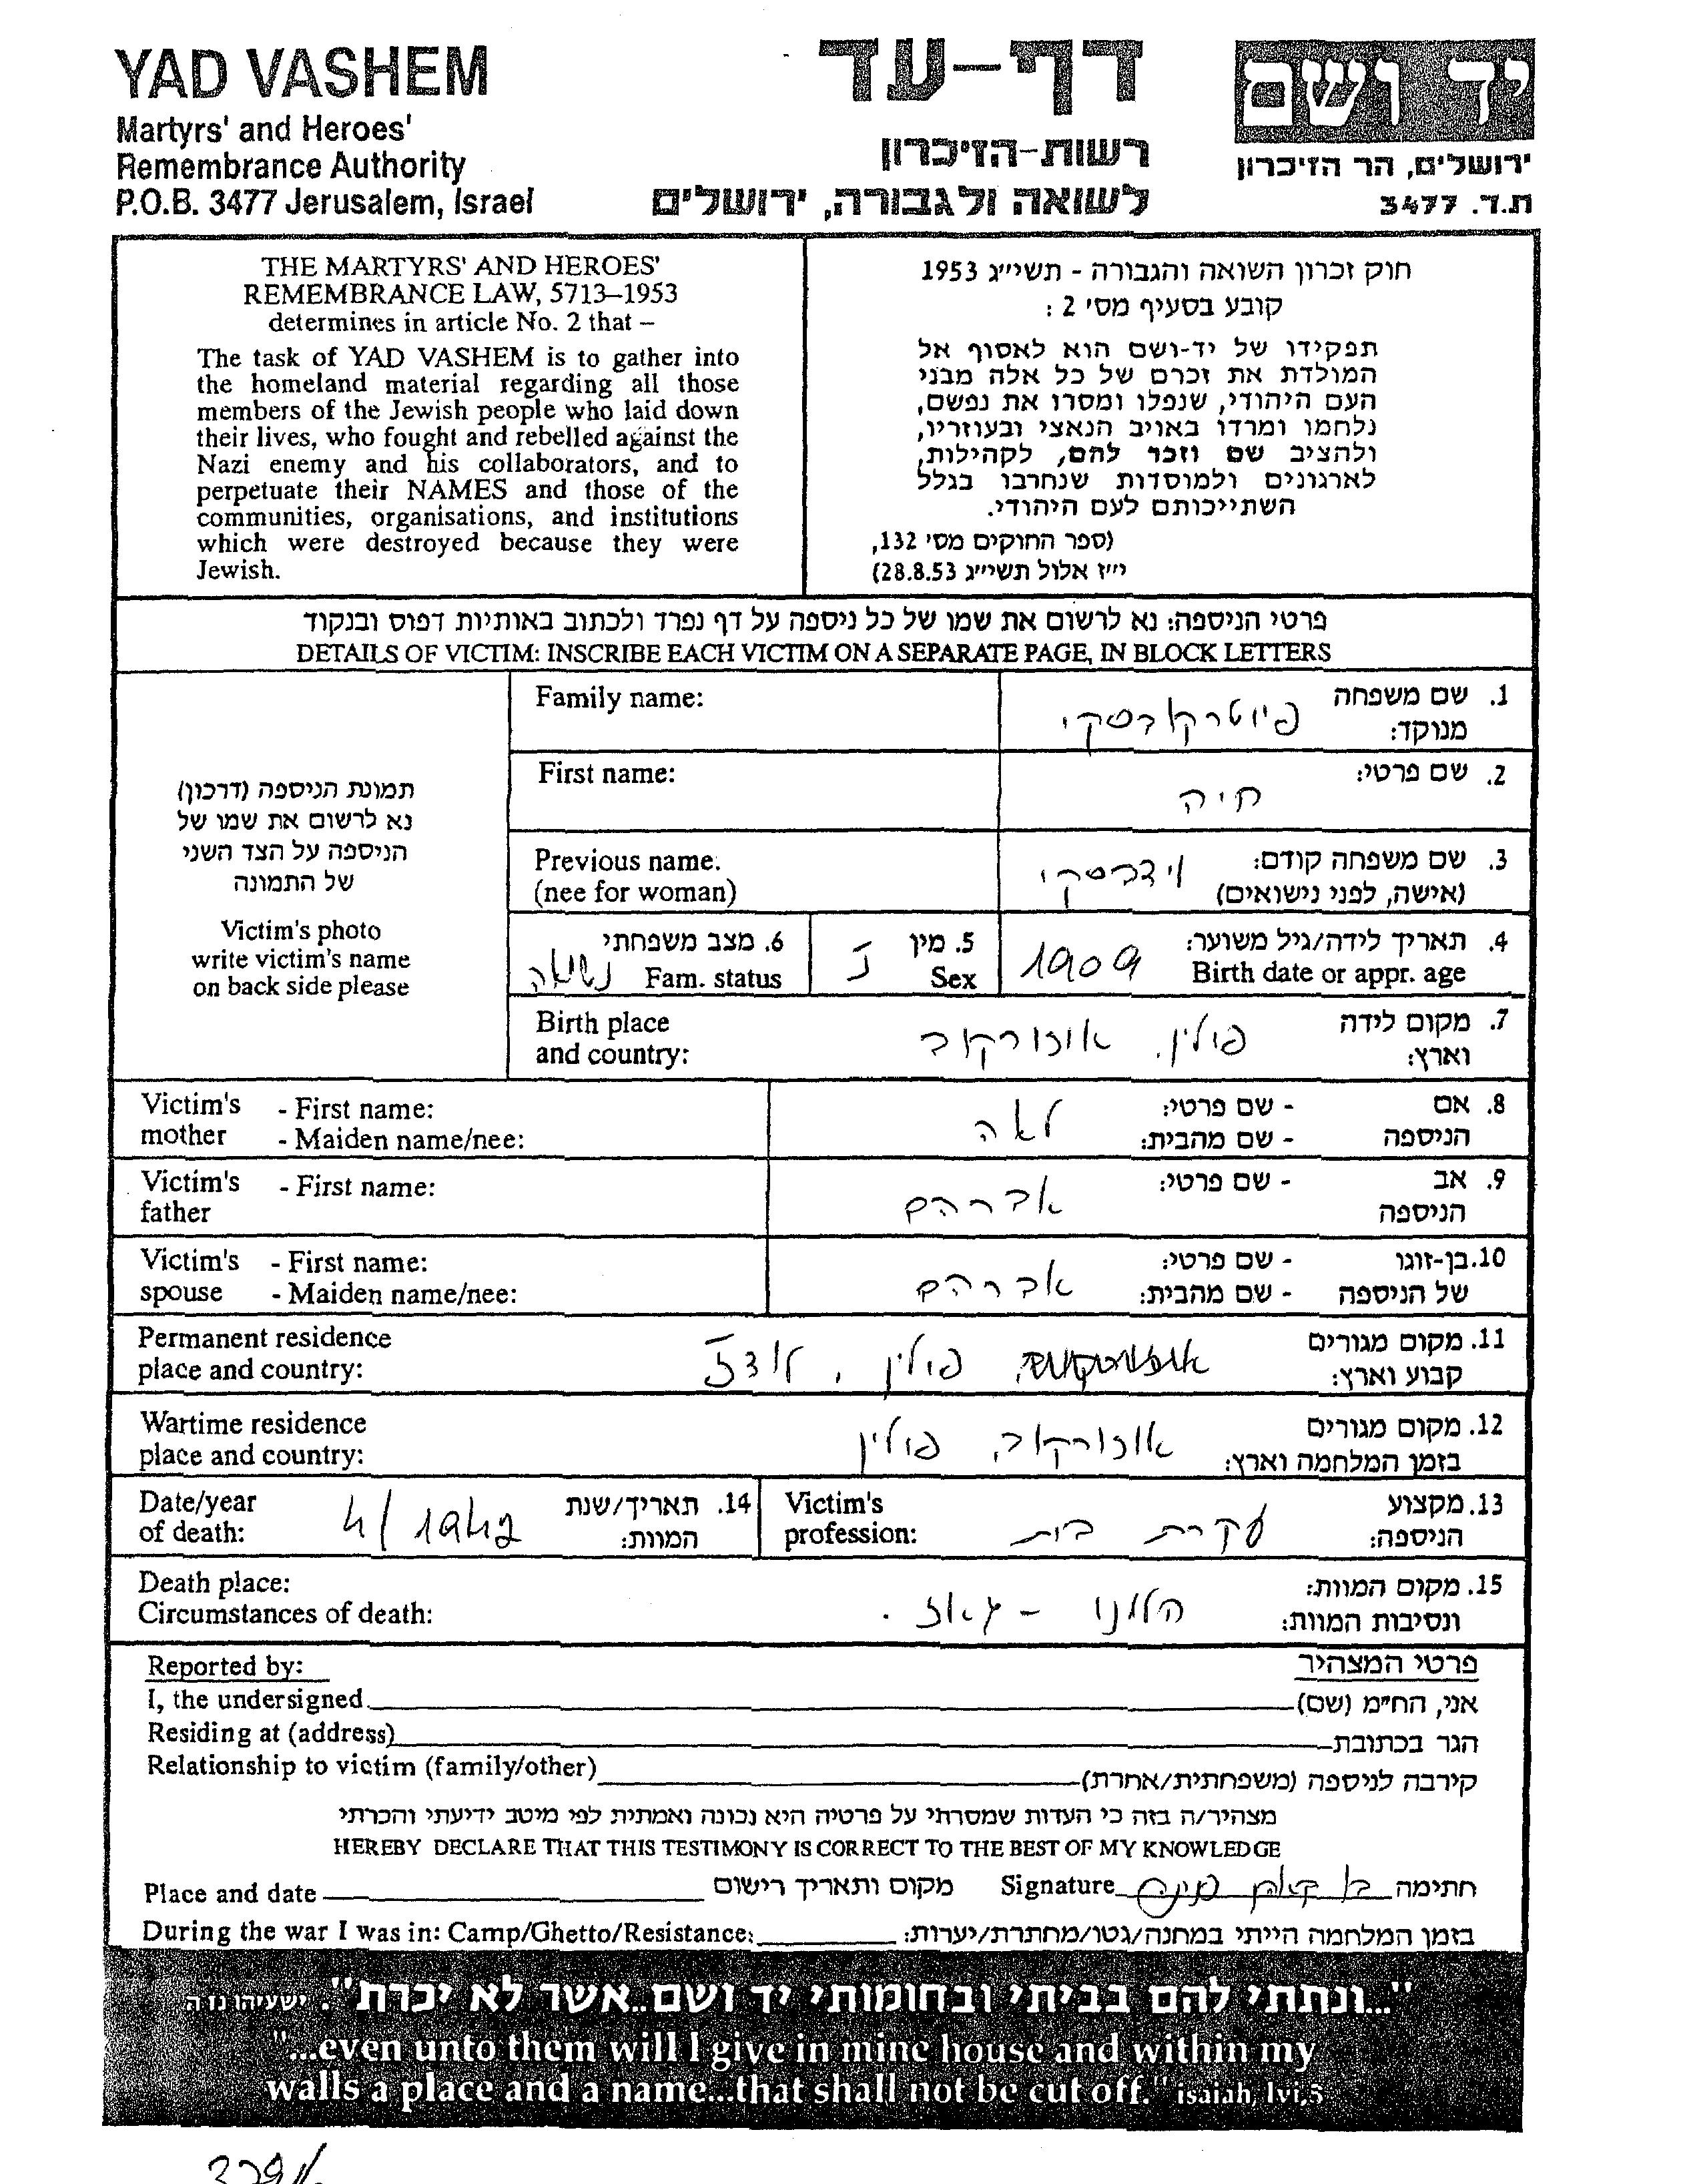 YAD VASHEM
Martyrs' and Heroes'
Remembrance Authority
P.O.B. 3477 Jerusalem, Israel
דף-עד
רשות-הזיכרון
לשואה ולגבורה, ירושלים
יד ושם
ירושלים, הר הזיכרון
ת.ד. 3477
THE MARTYRS' AND HEROES'
REMEMBRANCE LAW, 5713–1953
determines in article No. 2 that –
The task of YAD VASHEM is to gather into
the homeland material regarding all those
members of the Jewish people who laid down
their lives, who fought and rebelled against the
Nazi enemy and his collaborators, and to
perpetuate their NAMES and those of the
communities, organisations, and institutions
which were destroyed because they were
Jewish.
חוק זכרון השואה והגבורה - תשי״ג 1953
קובע בסעיף מס׳ 2 :
תפקידו של יד-ושם הוא לאסוף אל
המולדת את זכרם של כל אלה מבני
העם היהודי, שנפלו ומסרו את נפשם,
נלחמו ומרדו באויב הנאצי ובעוזריו,
ולהציב שם וזכר להם, לקהילות,
לארגונים ולמוסדות שנחרבו בגלל
השתייכותם לעם היהודי.
(ספר החוקים מס׳ 132,
י״ז אלול תשי״ג 28.8.53)
פרטי הניספה: נא לרשום את שמו של כל ניספה על דף נפרד ולכתוב באותיות דפוס ובנקוד
DETAILS OF VICTIM: INSCRIBE EACH VICTIM ON A SEPARATE PAGE, IN BLOCK LETTERS
תמונת הניספה (דרכון)
נא לרשום את שמו של
הניספה על הצד השני
של התמונה
Victim's photo
write victim's name
on back side please
1. שם משפחה
מנוקד:
פיוטרקובסקי
Family name:
2. שם פרטי:
חיה
First name:
3. שם משפחה קודם:
(אישה, לפני נישואים)
וידבסקי
Previous name.
(nee for woman)
4. תאריך לידה/גיל משוער:
Birth date or appr. age
1909
5. מין
Sex
נ
6. מצב משפחתי
Fam. status
נשואה
7. מקום לידה
וארץ:
פולין, אוזורקוב
Birth place
and country:
8. אם - שם פרטי:
הניספה - שם מהבית:
לאה
Victim's - First name:
mother - Maiden name/nee:
9. אב - שם פרטי:
הניספה
אברהם
Victim's - First name:
father
10. בן-זוגו - שם פרטי:
של הניספה - שם מהבית:
אברהם
Victim's - First name:
spouse - Maiden name/nee:
11. מקום מגורים
קבוע וארץ:
פולין, לודז
Permanent residence
place and country:
12. מקום מגורים
בזמן המלחמה וארץ:
אוזורקוב, פולין
Wartime residence
place and country:
13. מקצוע
הניספה:
עקרת בית
Victim's
profession:
14. תאריך/שנת
המוות:
4/1942
Date/year
of death:
15. מקום המוות:
ונסיבות המוות:
חלמנו - גאז.
Death place:
Circumstances of death:
Reported by: פרטי המצהיר
I, the undersigned אני, הח״מ (שם)
Residing at (address) הגר בכתובת
Relationship to victim (family/other) קירבה לניספה (משפחתית/אחרת)
מצהיר/ה בזה כי העדות שמסרתי על פרטיה היא נכונה ואמתית לפי מיטב ידיעתי והכרתי
HEREBY DECLARE THAT THIS TESTIMONY IS CORRECT TO THE BEST OF MY KNOWLEDGE
Place and date מקום ותאריך רישום Signature חתימה
During the war I was in: Camp/Ghetto/Resistance: בזמן המלחמה הייתי במחנה/גטו/מחתרת/יערות:
"...ונתתי להם בביתי ובחומותי יד ושם..אשר לא יכרת". ישעיהו נו ה
"...even unto them will I give in mine house and within my
walls a place and a name...that shall not be cut off." isaiah, lvi,5